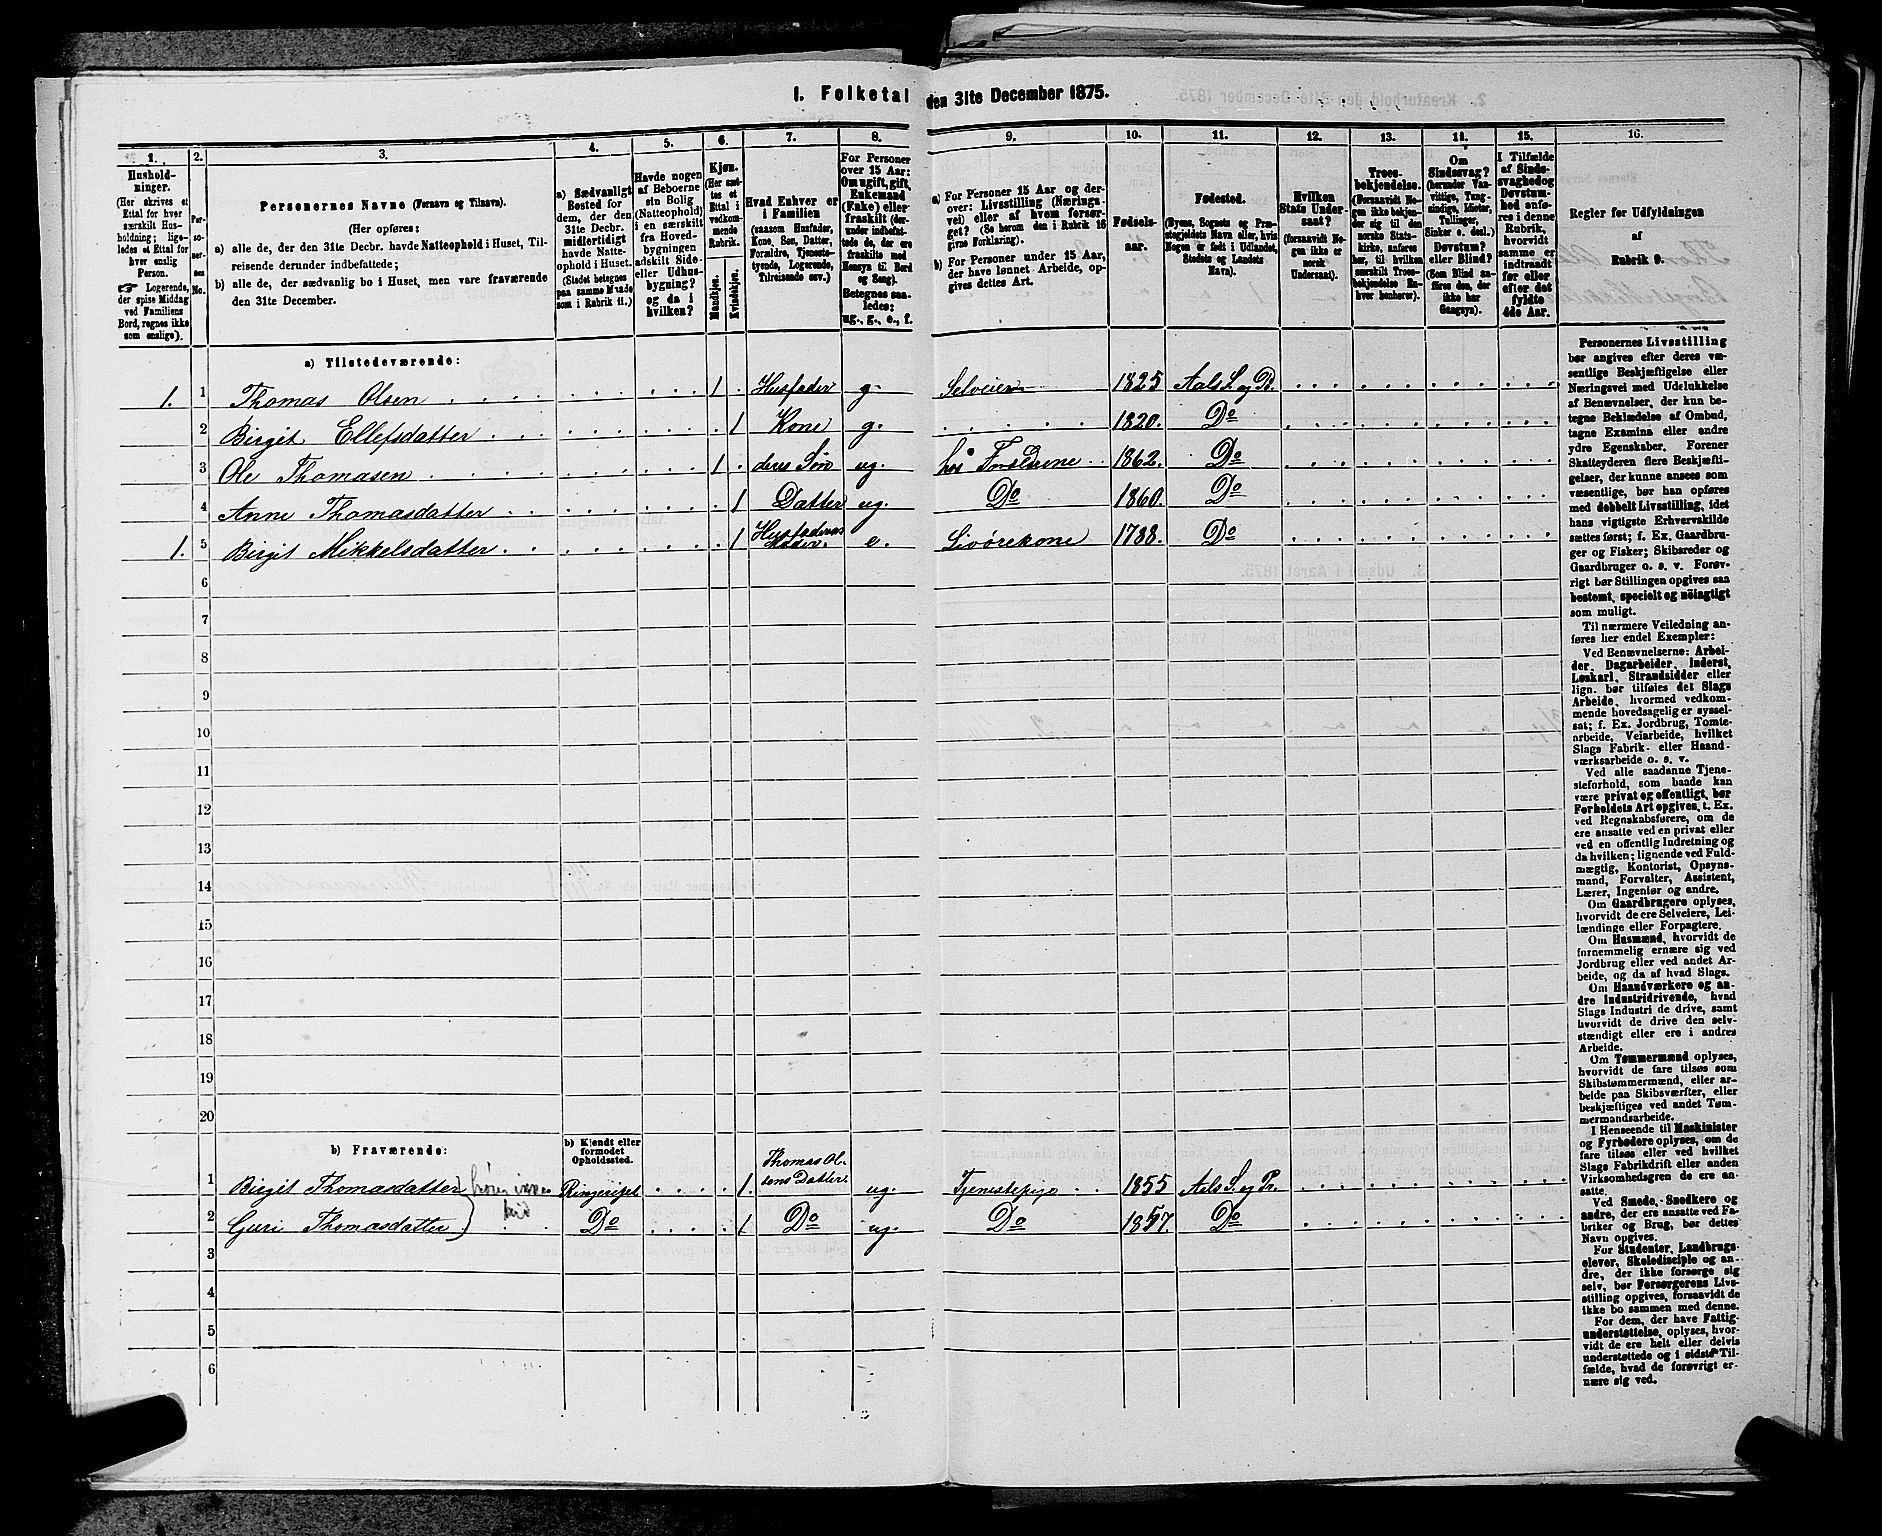 1. Folketal den 31te December 1875.
1. 2. 3. 4. 5. 6. 7. 8. 9. 10. 11. 12. 13. 14. 15. 16.
Hushold-
ninger.
(Her skrives et
Ettal for hver
særskilt Hus-
holdning; lige-
ledes et Ettal for
hver enslig
Person.
☞ Logerende,
der spise Middag
ved Familiens
Bord, regnes ikke
som enslige).
Per-
so-
ner-
nes
No.
Personernes Navne (Fornavn og Tilnavn).
(Her opføres:
a) alle de, der den 31te Decbr. havde Natteophold i Huset, Til-
reisende derunder indbefattede;
b) alle de, der sædvanlig bo i Huset, men vare fraværende
den 31te December.
a) Sædvanligt
Bosted for
dem, der den
31te Decbr.
midlertidigt
havde Natte-
ophold i Huset.
(Stedet betegnes
paa samme Maade
som i Rubrik 11.)
Havde nogen
af Beboerne
sin Bolig
(Natteophold)
i en særskilt
fra Hoved-
bygningen
adskilt Side-
eller Udhus-
bygning?
og da i
hvilken?
Kjøn.
(Her sæt-
tes et
Ettal i
vedkom-
mende
Rubrik.
Mandkjøn.
Kvindekjøn.
Hvad Enhver er
i Familien
(saasom Husfader,
Kone, Søn, Datter,
Forældre, Tjeneste-
tyende, Logerende,
Tilreisende osv.)
For Personer
over 15 Aar:
Om ugift, gift,
Enkemand
(Enke) eller
fraskilt (der-
under indbefat-
tede de, der ere
fraskilte med
Hensyn til Bord
og Seng).
Betegnes saa-
ledes:
ug., g., e., f.
a) For Personer 15 Aar og der-
over: Livsstilling (Nærings-
vei) eller af hvem forsør-
get? (Se herom den i Rubrik 16
givne Forklaring).
b) For Personer under 15 Aar,
der have lønnet Arbeide, op-
gives dettes Art.
Fødsels-
aar.
Fødested.
(Byens, Sognets og Præ-
stegjeldets Navn eller, hvis
Nogen er født i Udlandet,
Stedets og Landets
Navn).
Hvilken
Stats Under-
saat?
(forsaavidt No-
gen ikke er
norsk
Undersaat).
Troes-
bekjendelse.
(Forsaavidt No-
gen ikke bekjen-
der sig til den
norske Stats-
kirke, anføres
her, til hvilken
særskilt Troes-
bekjendelse En-
hver henhører).
Om
Sindssvag?
(herunder Van-
vittige, Tung-
sindige, Idioter,
Tullinger,
Sinker o. desl.)
Døvstum?
eller Blind?
(Som Blind an-
føres den, der
ikke har
Gangsyn).
I Tilfælde
af Sinds-
svaghed og
Døvstum-
hed anfø-
res i denne
Rubrik,
hvorvidt
samme er
indtraadt
før eller
efter det
fyldte
4de Aar.
Regler for Udfyldningen
af
Rubrik 9.
a) Tilstedeværende:
1. 1 Thomas Olsen 1 Husfader g. Selveier 1825 Aals S. og P.
2 Birgit Ellefsdatter 1 Kone g. 1820. Do
3 Ole Thomasen 1 deres Søn ug. hos Forældrene 1862. Do
4 Anne Thomasdatter 1 Datter ug. Do 1860. Do
1. 5 Birgit Mikkelsdatter 1 Husfaderens Moder. e. Livørekone 1788. Do
6
7
8
9
10
11
12
13
14
15
16
17
18
19
20
b) Fraværende:
b) Kjendt eller
formodet
Opholdssted.
1 Birgit Thomasdatter Ringeriget 1. Thomas Ol-
sens Datter. ug. Tjenestepige 1855 Aals S. og Pr.
2 Guri Thomasdatter Do 1 Do ug. Do 1857. Do
3
4
5
6
Personernes Livsstilling
bør angives efter deres væ-
sentlige Beskjæftigelse eller
Næringsvei med Udelukkelse
af Benævnelser, der kun be-
tegne Beklædelse af Ombud,
tagne Examina eller andre
ydre Egenskaber. Forener
Skatteyderen flere Beskjæfti-
gelser, der kunne ansees som
væsentlige, bør han opføres
med dobbelt Livsstilling, idet
hans vigtigste Erhvervskilde
sættes først; f. Ex. Gaardbru-
ger og Fisker; Skibsreder og
Gaardbruger o. s. v. Forøv-
rigt bør Stillingen opgives saa
bestemt, specielt og nøiagtigt
som muligt.
Til nærmere Veiledning an-
føres her endel Exempler:
Ved Benævnelserne: Arbei-
der, Dagarbeider, Inderst,
Løskarl, Strandsidder eller
lign. bør tilføies det Slags
Arbeide, hvormed vedkom-
mende hovedsagelig er syssel-
sat; f. Ex. Jordbrug, Tomte-
arbeide, Veiarbeide, hvilket
Slags Fabrik- eller Haand-
værksarbeide o. s. v.
Ved alle saadanne Tjene-
steforhold, som baade kan
være privat og offentligt, bør
Forholdets Art opgives, t. Ex.
ved Regnskabsførere, om de
ere ansatte ved en privat eller
ved en offentlig Indretning og
da hvilken; lignende ved Fuld-
mægtig, Kontorist, Opsyns-
mand, Forvalter, Assistent,
Lærer, Ingeniør og andre.
Om Gaardbrugere oplyses,
hvorvidt de ere Selveiere, Lei-
lændinge eller Forpagtere.
Om Husmænd, hvorvidt de
fornemmelig ernære sig ved
Jordbrug eller ved andet Ar-
beide, og da af hvad Slags.
Om Haandværkere og an-
dre Industridrivende, hvad
Slags Industri de drive, samt
hvorvidt de drive den selv-
stændigt eller ere i andres
Arbeide.
Om Tømmermænd oplyses,
hvorvidt de fare tilsøs som
Skibstømmermænd, eller ar-
beide paa Skibsværfter, eller
beskjæftiges ved andet Tøm-
mermandsarbeide.
I Henseende til Maskinister
og Fyrbødere oplyses, om de
fare tilsøs eller ved hvilket
Slags Fabrikdrift eller anden
Virksomhedsgren de ere an-
satte.
Ved Smede, Snedkere og
andre, der ere ansatte ved Fa-
briker og Brug, bør dettes
Navn opgives.
For Studenter, Landbrugs-
elever, Skoledisciple og an-
dre, der ikke forsørge sig
selv, bør Forsørgerens Livs-
stilling opgives, forsaavidt de
ikke bo sammen med denne.
For dem, der have Fattig-
understøttelse, oplyses, hvor-
vidt de ere helt eller delvis
understøttede og i sidste Til-
fælde, hvad de forøvrigt er-
nære sig ved.